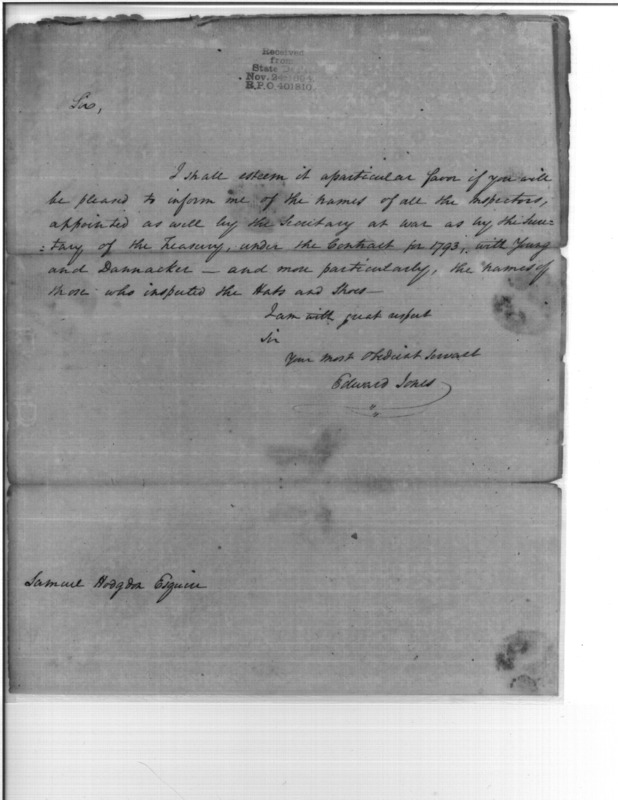 Received
from
State Dept.
Nov. 24 1904
R.P.O. 401810
Sir,
I shall esteem it a particular favor if you will
be pleased to inform me of the names of all the Inspectors,
appointed as well by the Secretary at war as by the Secre-
:tary of the Treasury, under the Contract for 1793, with Young
and Dannacker — and more particularly, the names of
those who inspected the Hats and Shoes —
I am with great respect
Sir
Your most Obedient Servant
Edward Jones
Samuel Hodgdon Esquire